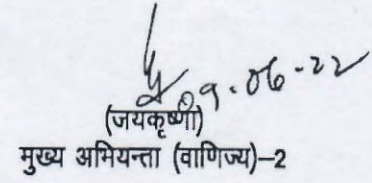 09-06-22
(जयकृष्णा)
मुख्य अभियन्ता (वाणिज्य)–2